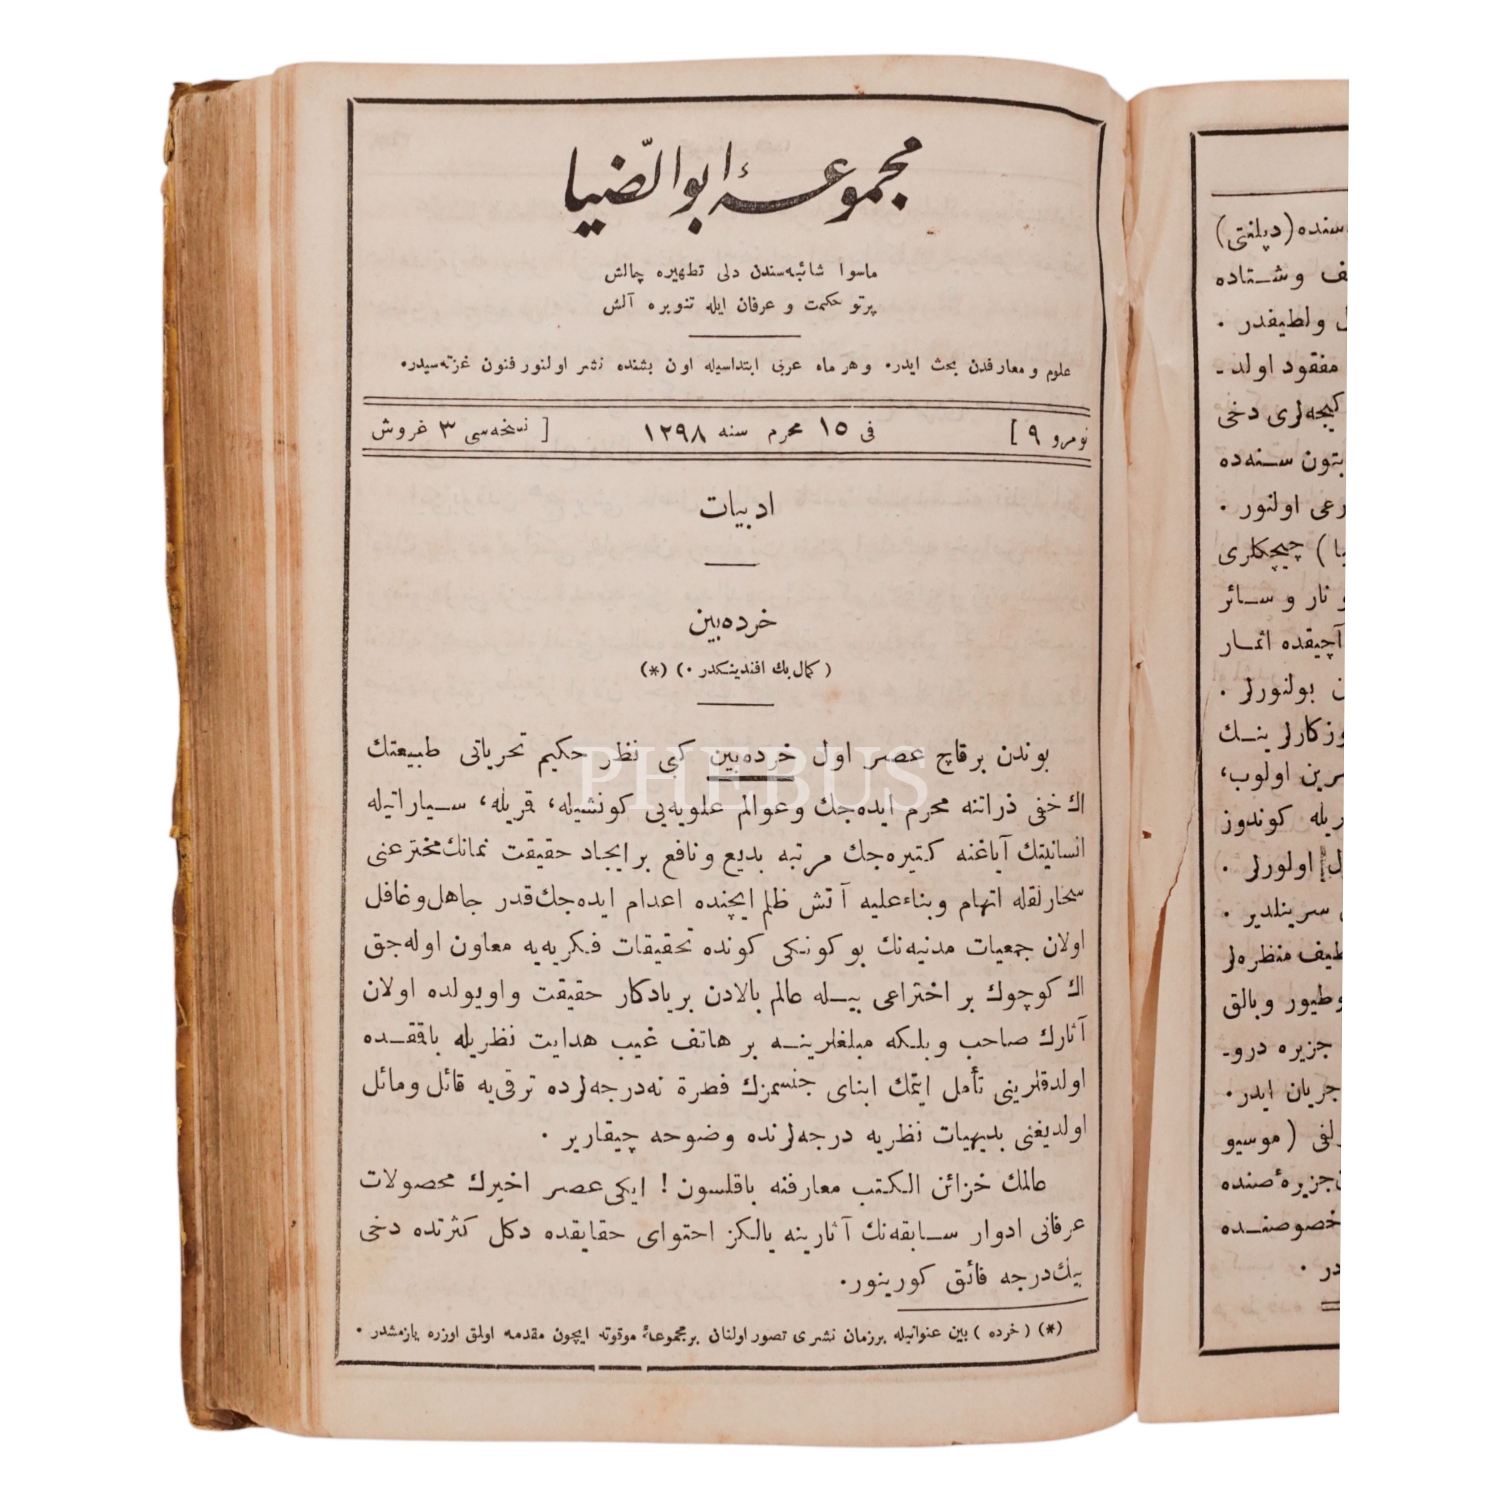 مجموعۀ ابوالضّيا
ماسوا شائبه‌سندن دلى تطهيره چالش
پرتو حكمت و عرفان ايله تنويره آلش
علوم و معارفدن بحث ايدر. و هر ماه عربى ابتداسيله اون بشنده نشر اولنور فنون غزته‌سيدر.
نومرو ٩ ] فى ١٥ محرم سنه ١٢٩٨ [ نسخه‌سى ٣ غروش
ادبيات
خرده‌بين
( كمال بك افندينكدر . ) (*)
بوندن بر قاچ عصر اول خرده‌بين كبى نظر حكيم تحرياتى طبيعتك
اك خفى ذراتنه محرم ايده‌جك و عوالم علويه‌يى كونشيله، قمريله، سياراتيله
انسانيتك آياغنه كتيره‌جك مرتبه بديع و نافع بر ايجاد حقيقت نمانك مخترعنى
سحارلقله اتهام و بناءعليه آتش ظلم ايچنده اعدام ايده‌جك قدر جاهل و غافل
اولان جمعيات مدنيه‌نك بو كونكى كونده تحقيقات فكريه‌يه معاون اوله‌جق
اك كوچوك بر اختراعى بيله عالم بالادن بر يادكار حقيقت و او يولده اولان
آثارك صاحب و بلكه مبلغلرينه بر هاتف غيب هدايت نظريله باققده
اولدقلرينى تأمل ايتمك ابناى جنسمزك فطرة نه‌درجه‌لرده ترقى‌يه قائل و مائل
اولديغنى بديهيات نظريه درجه‌لرنده وضوحه چيقارير .
عالمك خزائن الكتب معارفنه باقلسون ! ايكى عصر اخيرك محصولات
عرفانى ادوار سابقه‌نك آثارينه يالكز احتواى حقايقده دكل كثرتده دخى
بيك‌درجه فائق كورينور.
(*) ( خرده ) بين عنوانيله برزمان نشرى تصور اولنان بر مجموعۀ موقوته ايچون مقدمه اولق اوزره يازمشدر .
سنده (دپلنتى)
ف و شتاده
ل و لطيفدر .
مفقود اولد-
كيجه‌لرى دخى
بتون سنه‌ده
رعى اولنور .
يا ) چيچكلرى
و نار و سائر
آچيقده اثمار
ن بولنورلر .
وزكارلرينك
رين اولوب،
ريله كوندوز
ل] اولورلر .
سرينلدير .
طيف منظره‌لر
وطيور و بالق
جزيره درو-
جريان ايدر.
لفى ( موسيو
جزيرۀ صنده
خصوصنده
در .
PHEBUS